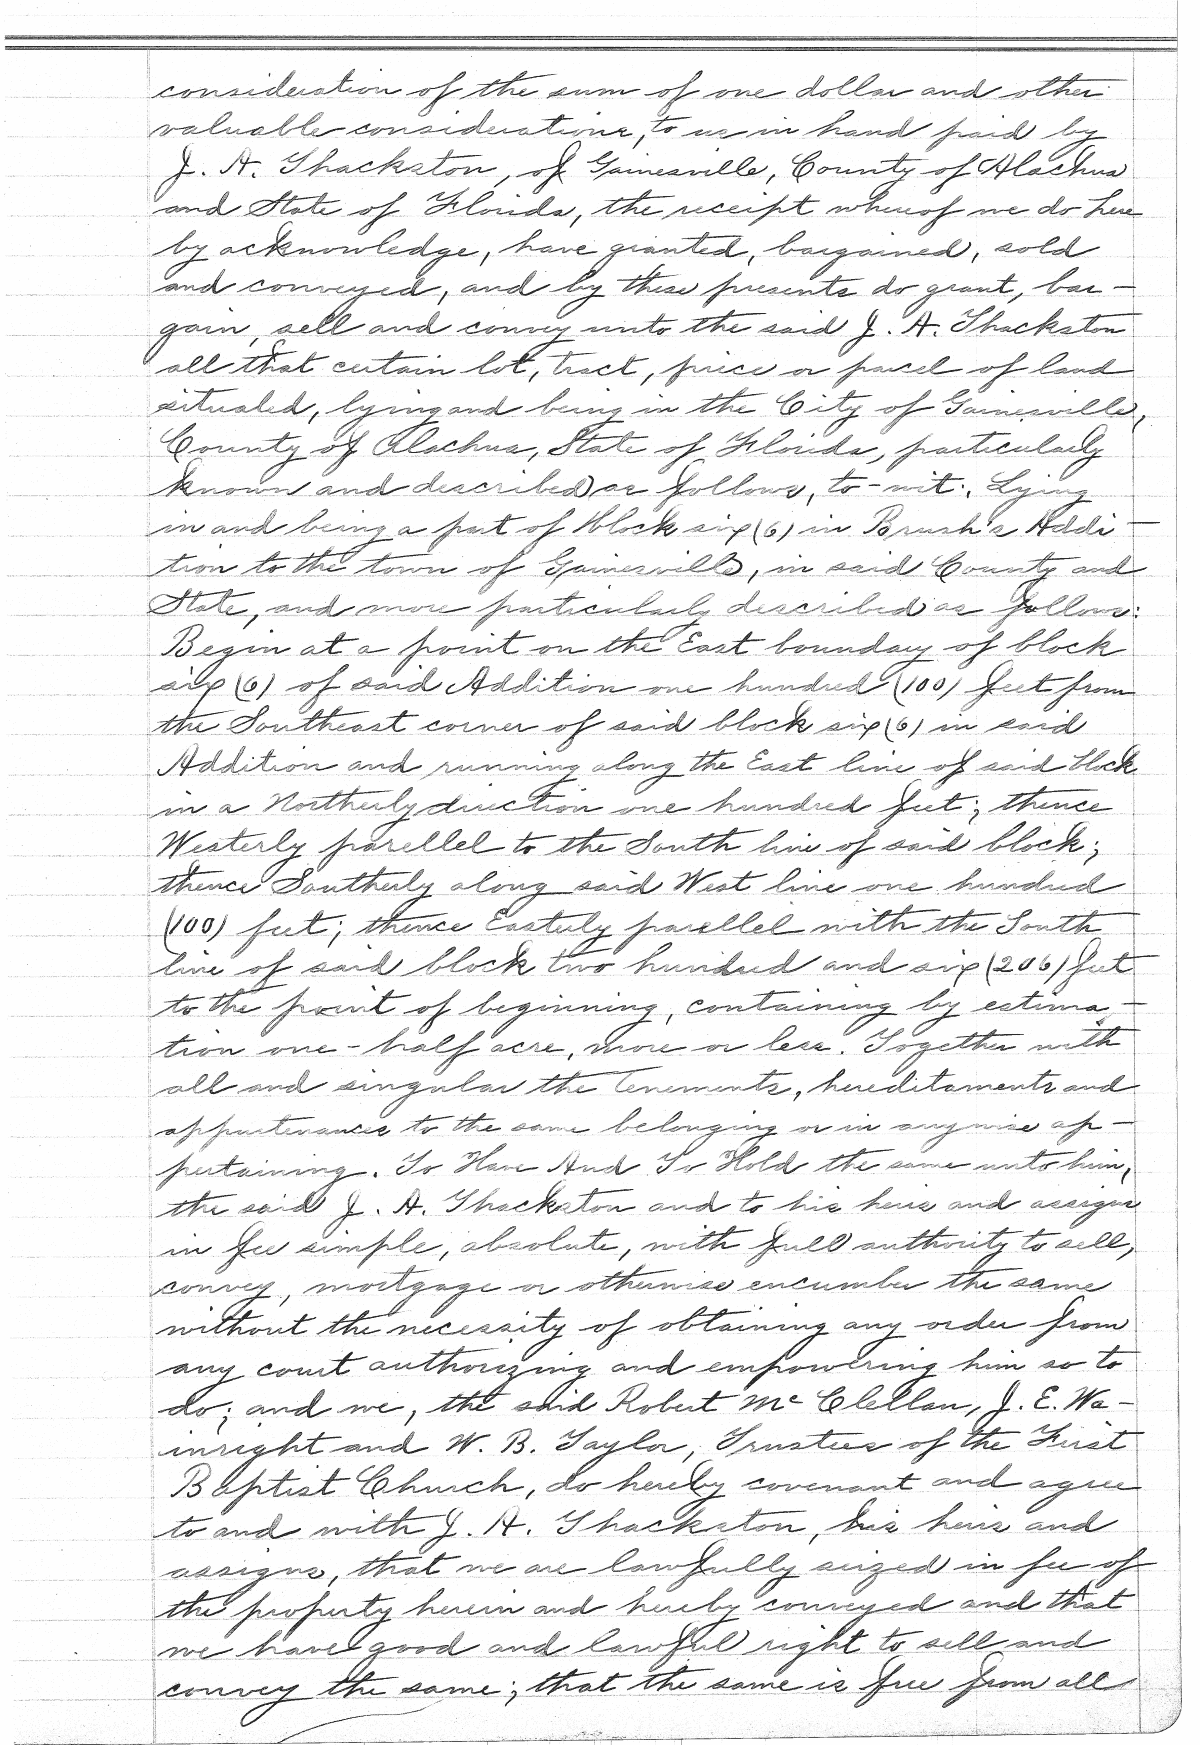 consideration of the sum of one dollar and other
valuable considerations, to us in hand paid by
J. A. Thackston, of Gainesville, County of Alachua
and State of Florida, the receipt whereof we do here
by acknowledge, have granted, bargained, sold
and conveyed, and by these presents do grant, bar-
gain, sell and convey unto the said J. A. Thackston
all that certain lot, tract, piece or parcel of land
situated, lying and being in the City of Gainesville,
County of Alachua, State of Florida, particularly
known and described as follows, to-wit:, Lying
in and being a part of block six (6) in Brush's Addi-
tion to the town of Gainesville, in said County and
State, and more particularly described as follows:
Begin at a point on the East boundary of block
six (6) of said Addition one hundred (100) feet from
the Southeast corner of said block six (6) in said
Addition and running along the East line of said block
in a Northerly direction one hundred feet; thence
Westerly parellel to the South line of said block;
thence Southerly along said West line one hundred
(100) feet; thence Easterly parellel with the South
line of said block two hundred and six (206) feet
to the point of beginning, containing by estima-
tion one-half acre, more or less. Together with
all and singular the tenements, hereditaments and
appurtenances to the same belonging or in anywise ap-
pertaining. To Have And To Hold the same unto him,
the said J. A. Thackston and to his heirs and assigns
in fee simple, absolute, with full authority to sell,
convey, mortgage or otherwise encumber the same
without the necessity of obtaining any order from
any court authorizing and empowering him so to
do; and we, the said Robert McClellan, J. E. Wa-
inright and W. B. Taylor, Trustees of the First
Baptist Church, do hereby covenant and agree
to and with J. A. Thackston, his heirs and
assigns, that we are lawfully seized in fee of
the property herein and hereby conveyed and that
we have good and lawful right to sell and
convey the same; that the same is free from all